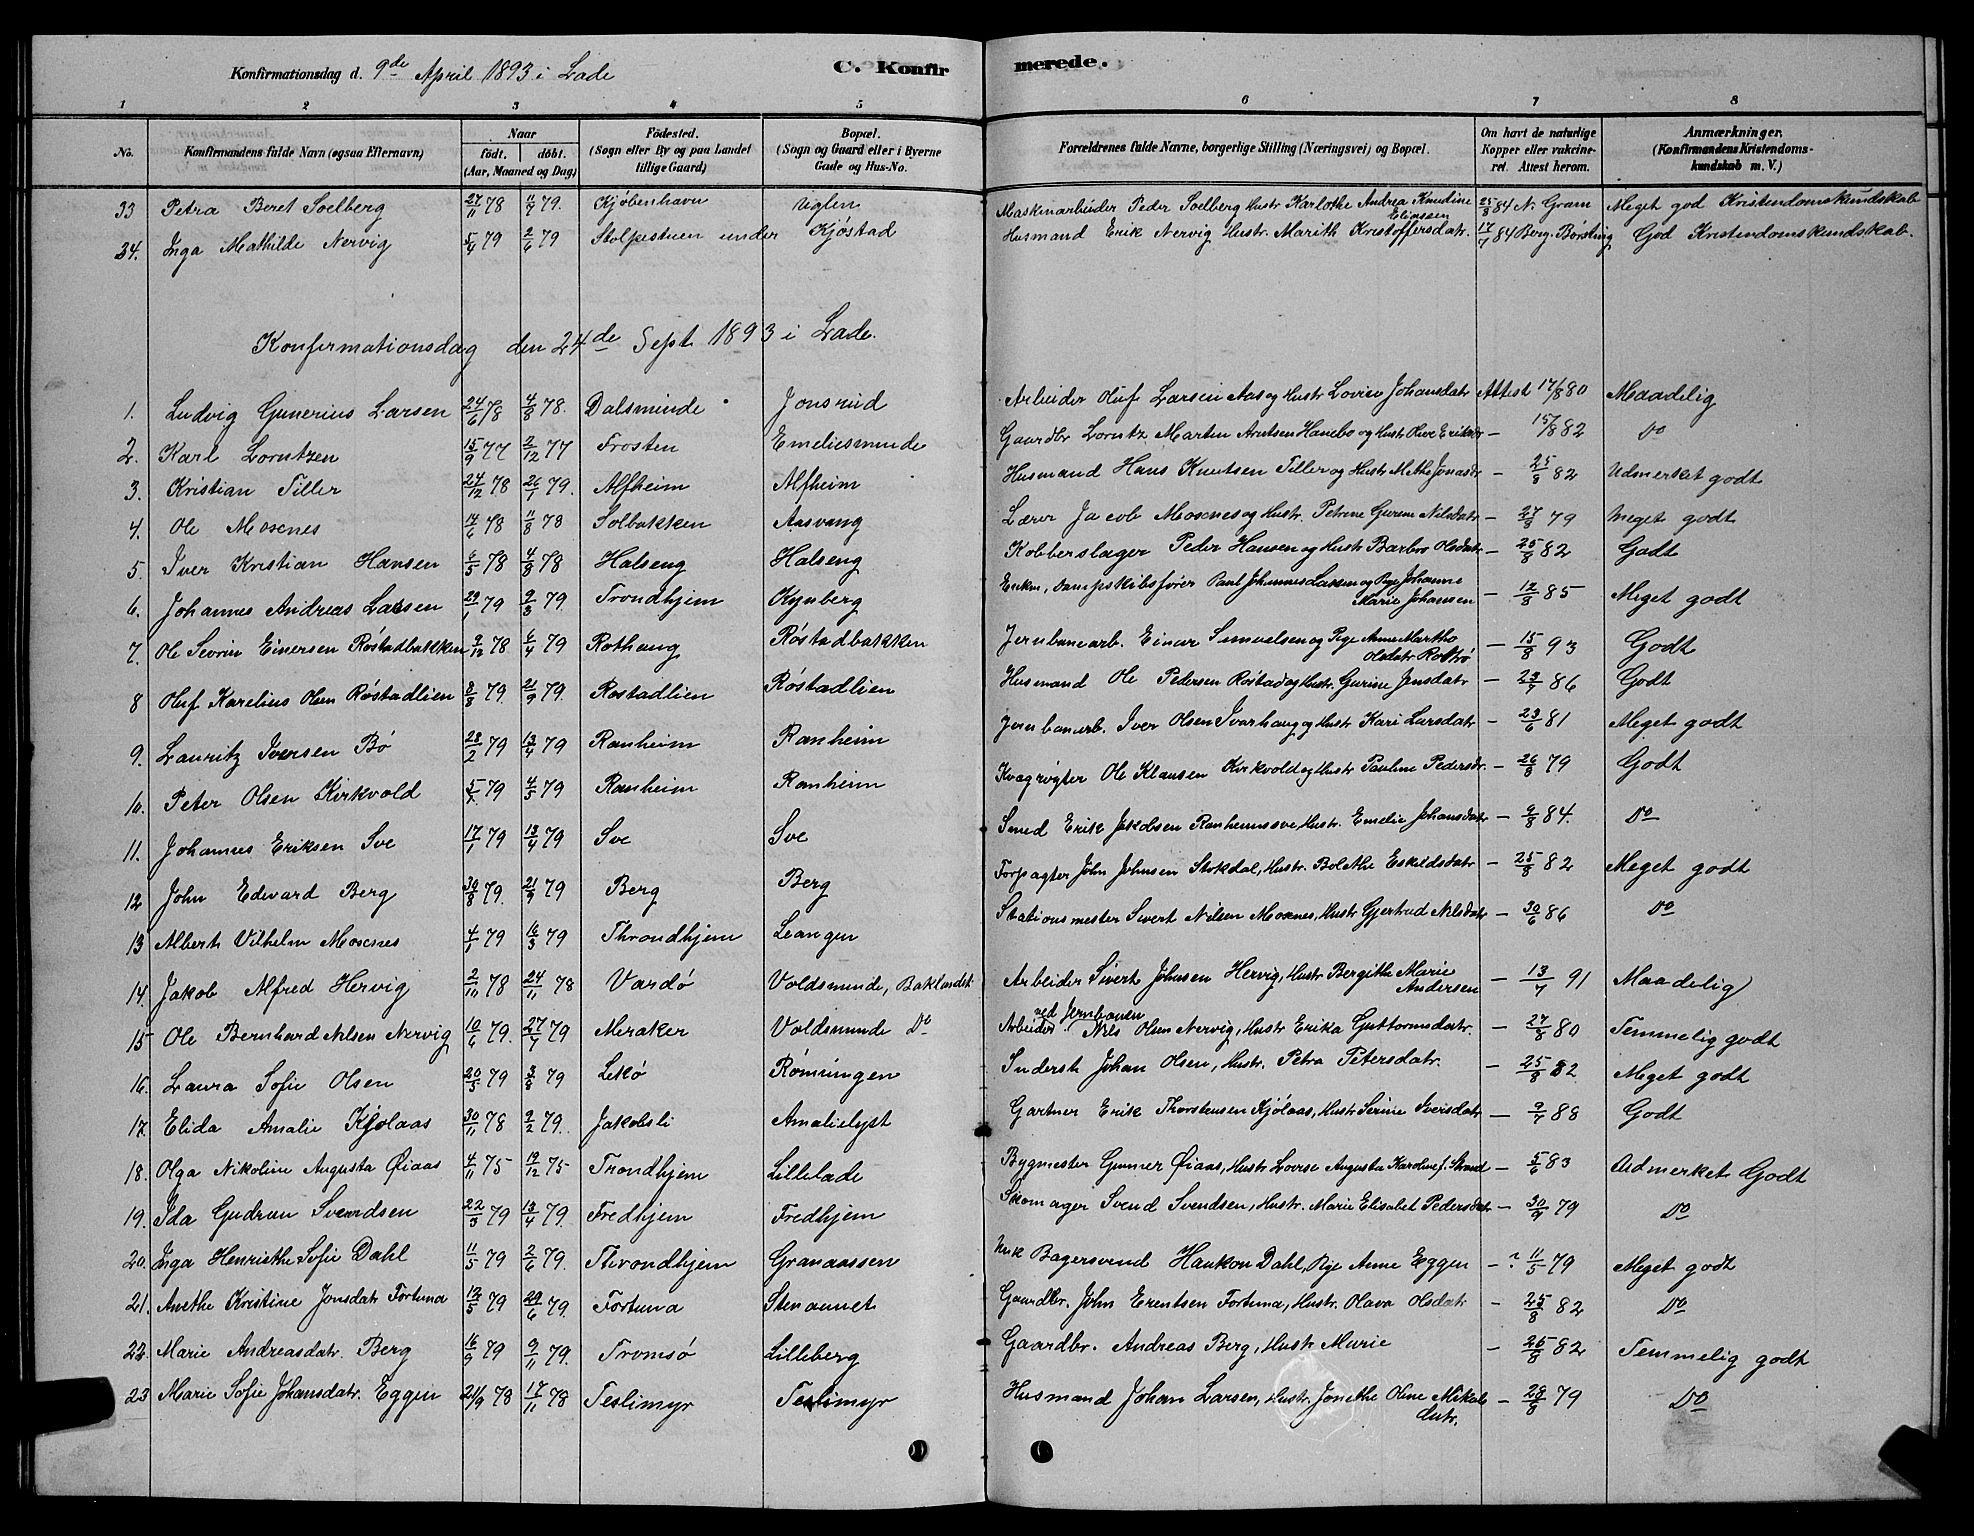 Konfirmationsdag d. 9de April 1893 i Lade C. Konfirmerede.
1 2 3 4 5 6 7 8
No. Konfirmandens fulde Navn (ogsaa Efternavn) Naar födt. döbt. (Aar, Maaned og Dag) Födested. (Sogn eller By og paa Landet tillige Gaard) Bopæl. (Sogn og Gaard eller i Byerne Gade og Hus-No. Forældrenes fulde Navne, borgerlige Stilling (Næringsvei) og Bopæl. Om havt de naturlige Kopper eller vakcineret. Attest herom. Anmærkninger. (Konfirmandens Kristendomskundskab m. V.)
33 Petra Beret Soelberg 27/11 78 11/7 79. Kjöbenhavn Uglen Maskinarbeider Peder Soelberg Hustr Karlothe Andrea Knudine Eliassen 25/8 84 N. Gram Meget god Kristendomskundskab
34. Inga Mathilde Nervig 5/4 79 2/6 79 Stolpestuen under Kjöstad Husmand Erik Nervig Hustr. Marith Kristoffersdatr. 17/7 84 Berg. Börsting God Kristendomskundskab.
Konfirmationsdag den 24de Sept 1893 i Lade.
1. Ludvig Gunerius Larsen 24/6 78 4/8 78. Dalsminde Jonsrud Arbeider Oluf Larsen Aas og Hustr Lovise Johansdatr Attest 17/8 80 Maadelig
2. Karl Lorntzen 15/9 77 2/12 77 Frosten Emeliesminde Gaardbr Lorntz Martin Arntsen Hanebo og Hustr Oline Eriksdr — 15/8 82 Do
3. Kristian Tiller 24/12 78 26/1 79. Alfheim Alfheim Husmand Hans Knutsen Tiller og Hustr Methe Jonasdr — 25/8 82 Udmerket godt
4. Ole Moxnes 14/6 78 11/8 78 Solbakken Aasvang Lærer Jacob Moxnes og Hustr. Petrine Gurine Nilsdatr — 27/8 79 Meget godt
5. Iver Kristian Hansen 6/5 78 4/8 78 Halseng Halseng Kobberslager Peder Hansen og Hustr Barbro Olsdatr — 25/8 82 Godt
6. Johannes Andreas Lassen 29/1 79 9/3 79. Trondhjem Kynberg Enkm, Dampskibsfører Paul Johannes Lassen og Pige Johanne Marie Johansen — 12/8 85 Meget godt
7. Ole Sevrin Einersen Röstadbakken 9/12 78 6/4 79 Rothaug Röstadbakken Jernbanearb. Einar Simuelsen og Pige Anne Martha Olsdatr Rotrö — 15/8 93 Godt
8 Oluf Karelius Olsen Röstadlien 8/8 79. 21/9 79. Rostadlien Röstadlien Husmand Ole Pedersen Röstad og Hustr. Gurine Jensdatr — 23/7 86 Godt
9. Lauritz Iversen Bö 28/2 79 13/4 79 Ranheim Ranheim Jernbanarb. Iver Olsen Ivarhaug og Hustr Kari Larsdatr — 23/6 81 Meget godt
10. Peter Olsen Kirkvold 5/4 79 4/5 79 Ranheim Ranheim Kvægrögter Ole Klausen Kirkvold og Hustr Pauline Pedersdr. — 26/8 79 Godt
11. Johannes Eriksen Sve 17/1 79 13/4 79 Sve Sve Smed Erik Jakobsen Ranheimssve, Hustr. Emelie Johansdatr — 9/8 84. Do
12 John Edevard Berg 30/8 79. 21/9 79 Berg Berg Forpagter John Johnsen Stokdal, Hustr. Bolethe Eskildsdatr — 25/8 82 Meget godt
13 Albert Vilhelm Moxnes 4/1 79 16/3 79 Throndhjem Leangen Stationsmester Sivert Nilsen Moxnes, Hustr Gjertrud Nilsdatr — 30/6 86 Do
14. Jakob Alfred Hervig 2/10 78 24/11 78 Vardö Voldsminde, Baklandet. Arbeider Sivert Johnsen Hervig, Hustr Bergithe Marie Andersen — 13/7 91 Maadelig
15 Ole Bernhard Nilsen Nervig 10/6 79. 27/7 79 Meraker Voldsminde Do Arbeider ved Jernbanen Nils Olsen Nervig, Hustr Erika Guttormsdatr. — 27/8 80 Temmelig godt
16. Laura Sofie Olsen 20/5 79 3/8 79 Lekö Römningen Inderst Johan Olsen, Hustr. Petra Petersdatr. — 25/8 82 Meget godt
17. Elida Amalie Kjölaas 30/11 78 9/2 79. Jakobsli Amalielyst Gartner Erik Thorstensen Kjölaas, Hustr Serine Iversdatr — 9/7 88 Godt
18. Olga Nikoline Augusta Øiaas 4/11 75 19/12 75 Trondhjem Lillelade Bygmester Gunner Øiaas, Hustr Lovise Augusta Karoline f. Strand — 5/6 83 Udmerket Godt
19. Ida Gudrun Svendsen 22/3 79 13/4 79. Fredhjem Fredhjem Skomager Svend Svendsen, Hustr. Marie Elisabet Pedersdatr — 30/9 79 Do
20. Inga Henriethe Sofie Dahl 11/5 79 2/6 79. Throndhjem Granaassen Unk Bagersvend Haakon Dahl, Pige Anne Eggen — ? 11/5 79 Meget godt
21. Anethe Kristine Jonsdatr Fortuna 12/5 79 29/6 79. Fortuna Stenaunet Gaardbr. John Erentsen Fortuna, Hustr. Olava Olsdatr — 25/8 82 Do
22. Marie Andreasdatr. Berg 16/9 79 9/11 79. Tromsö Lilleberg Gaardbr. Andreas Berg, Hustr Marie — 26/8 82 Temmelig godt
23 Marie Sofie Johansdatr. Eggen 21/9 78 17/11 78 Teslimyr Teslimyr Husmand Johan Larsen, Hustr. Jonethe Oline Mikals datr. — 28/8 79 Do